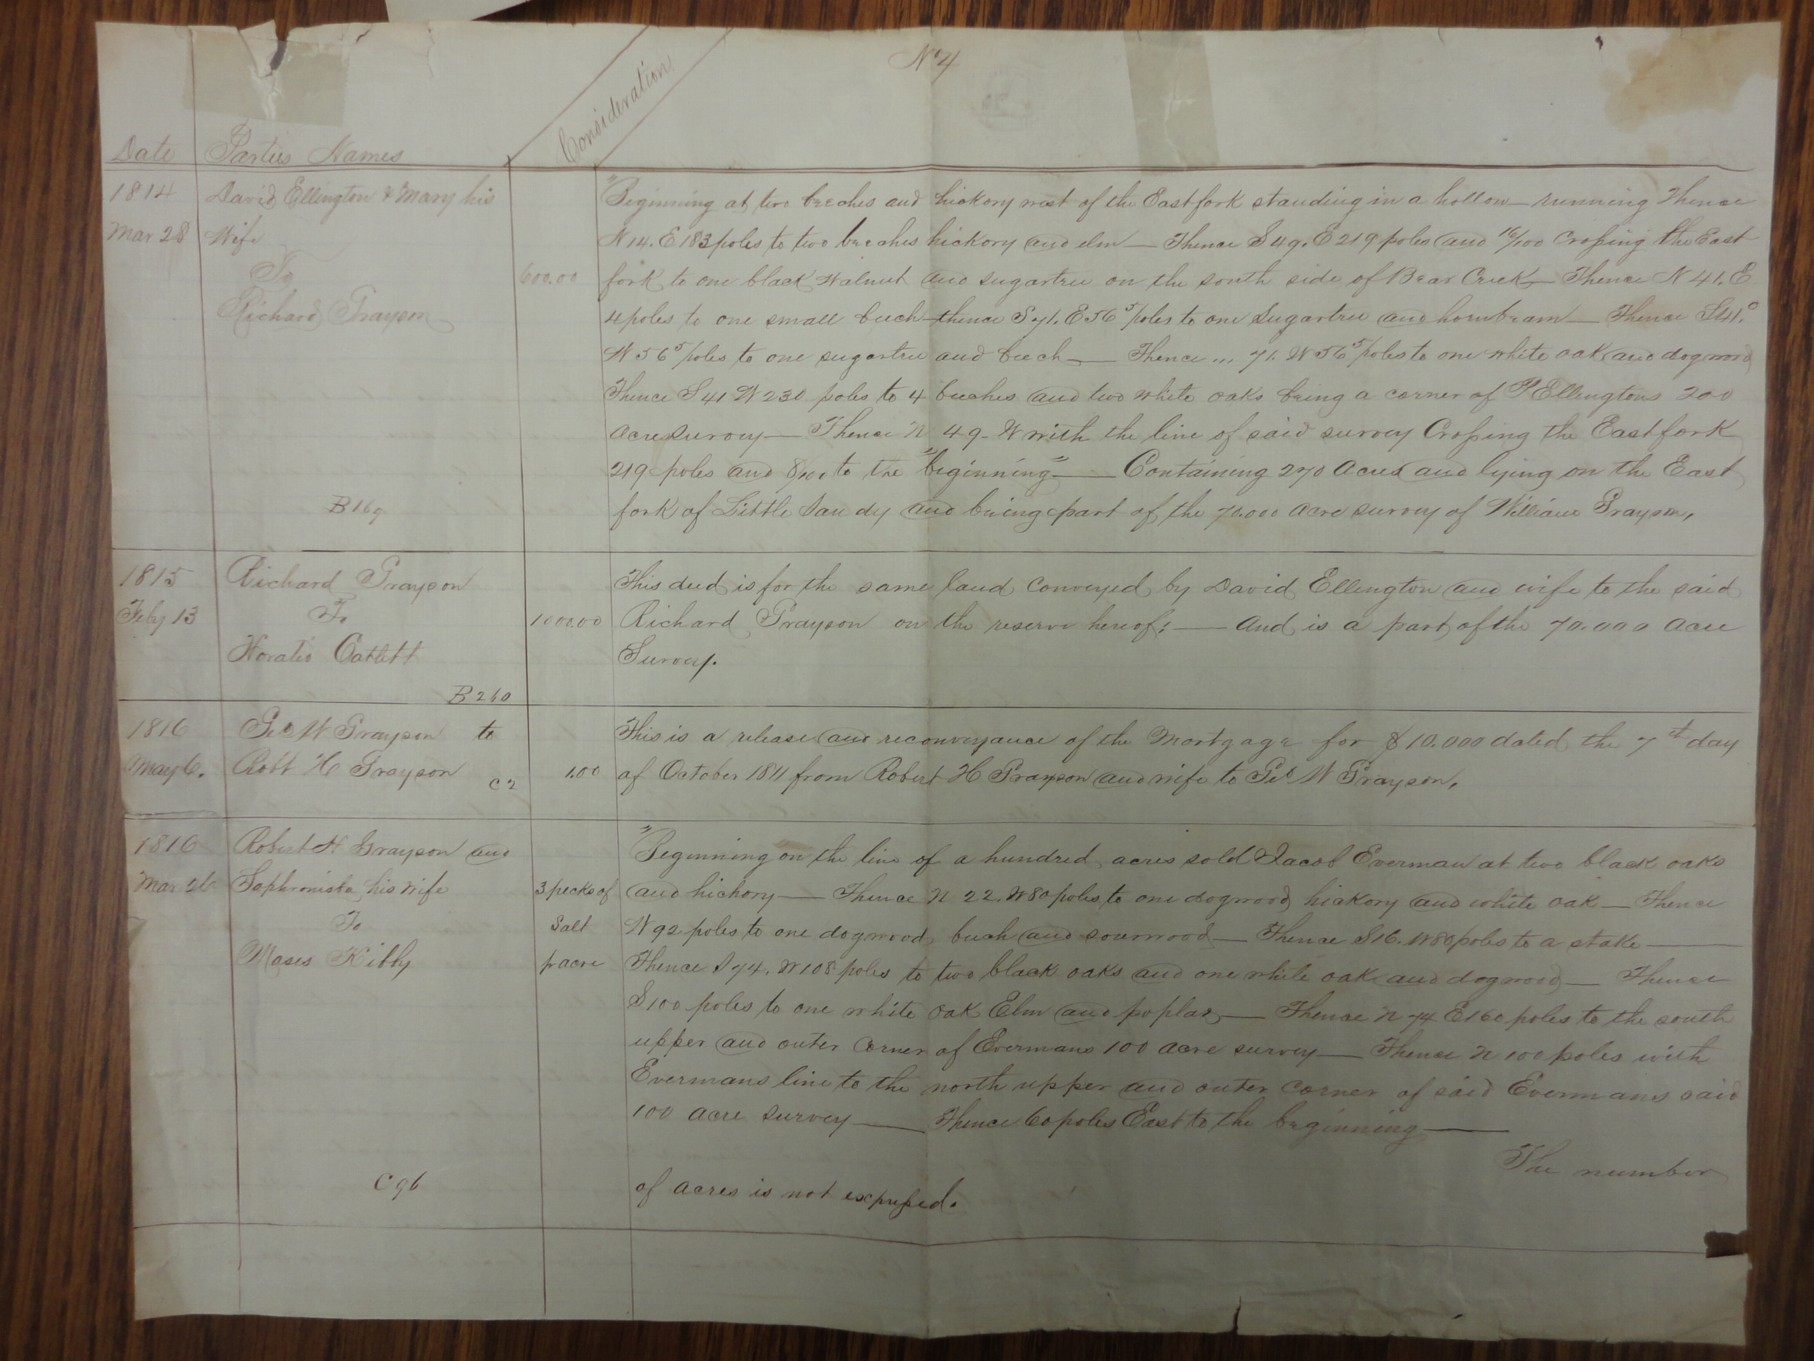 No 4
Date Parties Names Consideration
1814 David Ellington & Mary his
Mar 28 Wife
To
Richard Grayson
600.00
B 169
"Beginning at two beeches and hickory west of the East fork standing in a hollow running Thence
N 14. E 183 poles to two beeches hickory and elm — Thence S 49. E 219 poles and 16/100 Crossing the East
fork to one black Walnut and sugartree on the south side of Bear Creek — Thence N 41. E
4 poles to one small beech — thence S 71. E 56 5/ poles to one Sugartree and hornbeam — Thence S 41.°
W 56 5/ poles to one sugartree and beech — Thence ... 71. W 56 5/ poles to one white oak and dogwood
Thence S 41 W 230 poles to 4 beeches and two white oaks being a corner of Ellingtons 200
Acre Survey — Thence N 49. W with the line of said survey Crossing the East fork
219 poles and to the "beginning" — Containing 270 Acres and lying on the East
fork of Little Sandy and being part of the 70.000 acre survey of William Grayson,
1815 Richard Grayson
Feby 13 To
Horatio Catlett
B 260
1000.00
This deed is for the same land conveyed by David Ellington and wife to the said
Richard Grayson on the reserve hereof; — And is a part of the 70.000 Acre
Survey.
1816 Geo W Grayson to
May 6. Robt H Grayson C 2
1.00
This is a release and reconveyance of the Mortgage for $10.000 dated the 7th day
of October 1811 from Robert H Grayson and wife to Geo W Grayson,
1816 Robert H Grayson and
Mar 26 Sophronista his wife
To
Moses Kibby
3 pecks of
Salt
pr acre
C 96
"Beginning on the line of a hundred acres sold Jacob Everman at two black oaks
and hickory — Thence N 22. W 80 poles to one dogwood hickory and white oak — Thence
N 92 poles to one dogwood beech and sourwood — Thence S 16. W 80 poles to a stake —
Thence S 74. W 108 poles to two black oaks and one white oak and dogwood — Thence
S 100 poles to one white oak Elm and poplar — Thence N 74 E 160 poles to the south
upper and outer Corner of Evermans 100 acre survey — Thence N 100 poles with
Evermans line to the north upper and outer corner of said Evermans said
100 acre survey — Thence 60 poles East to the beginning —
The number
of acres is not expressed.